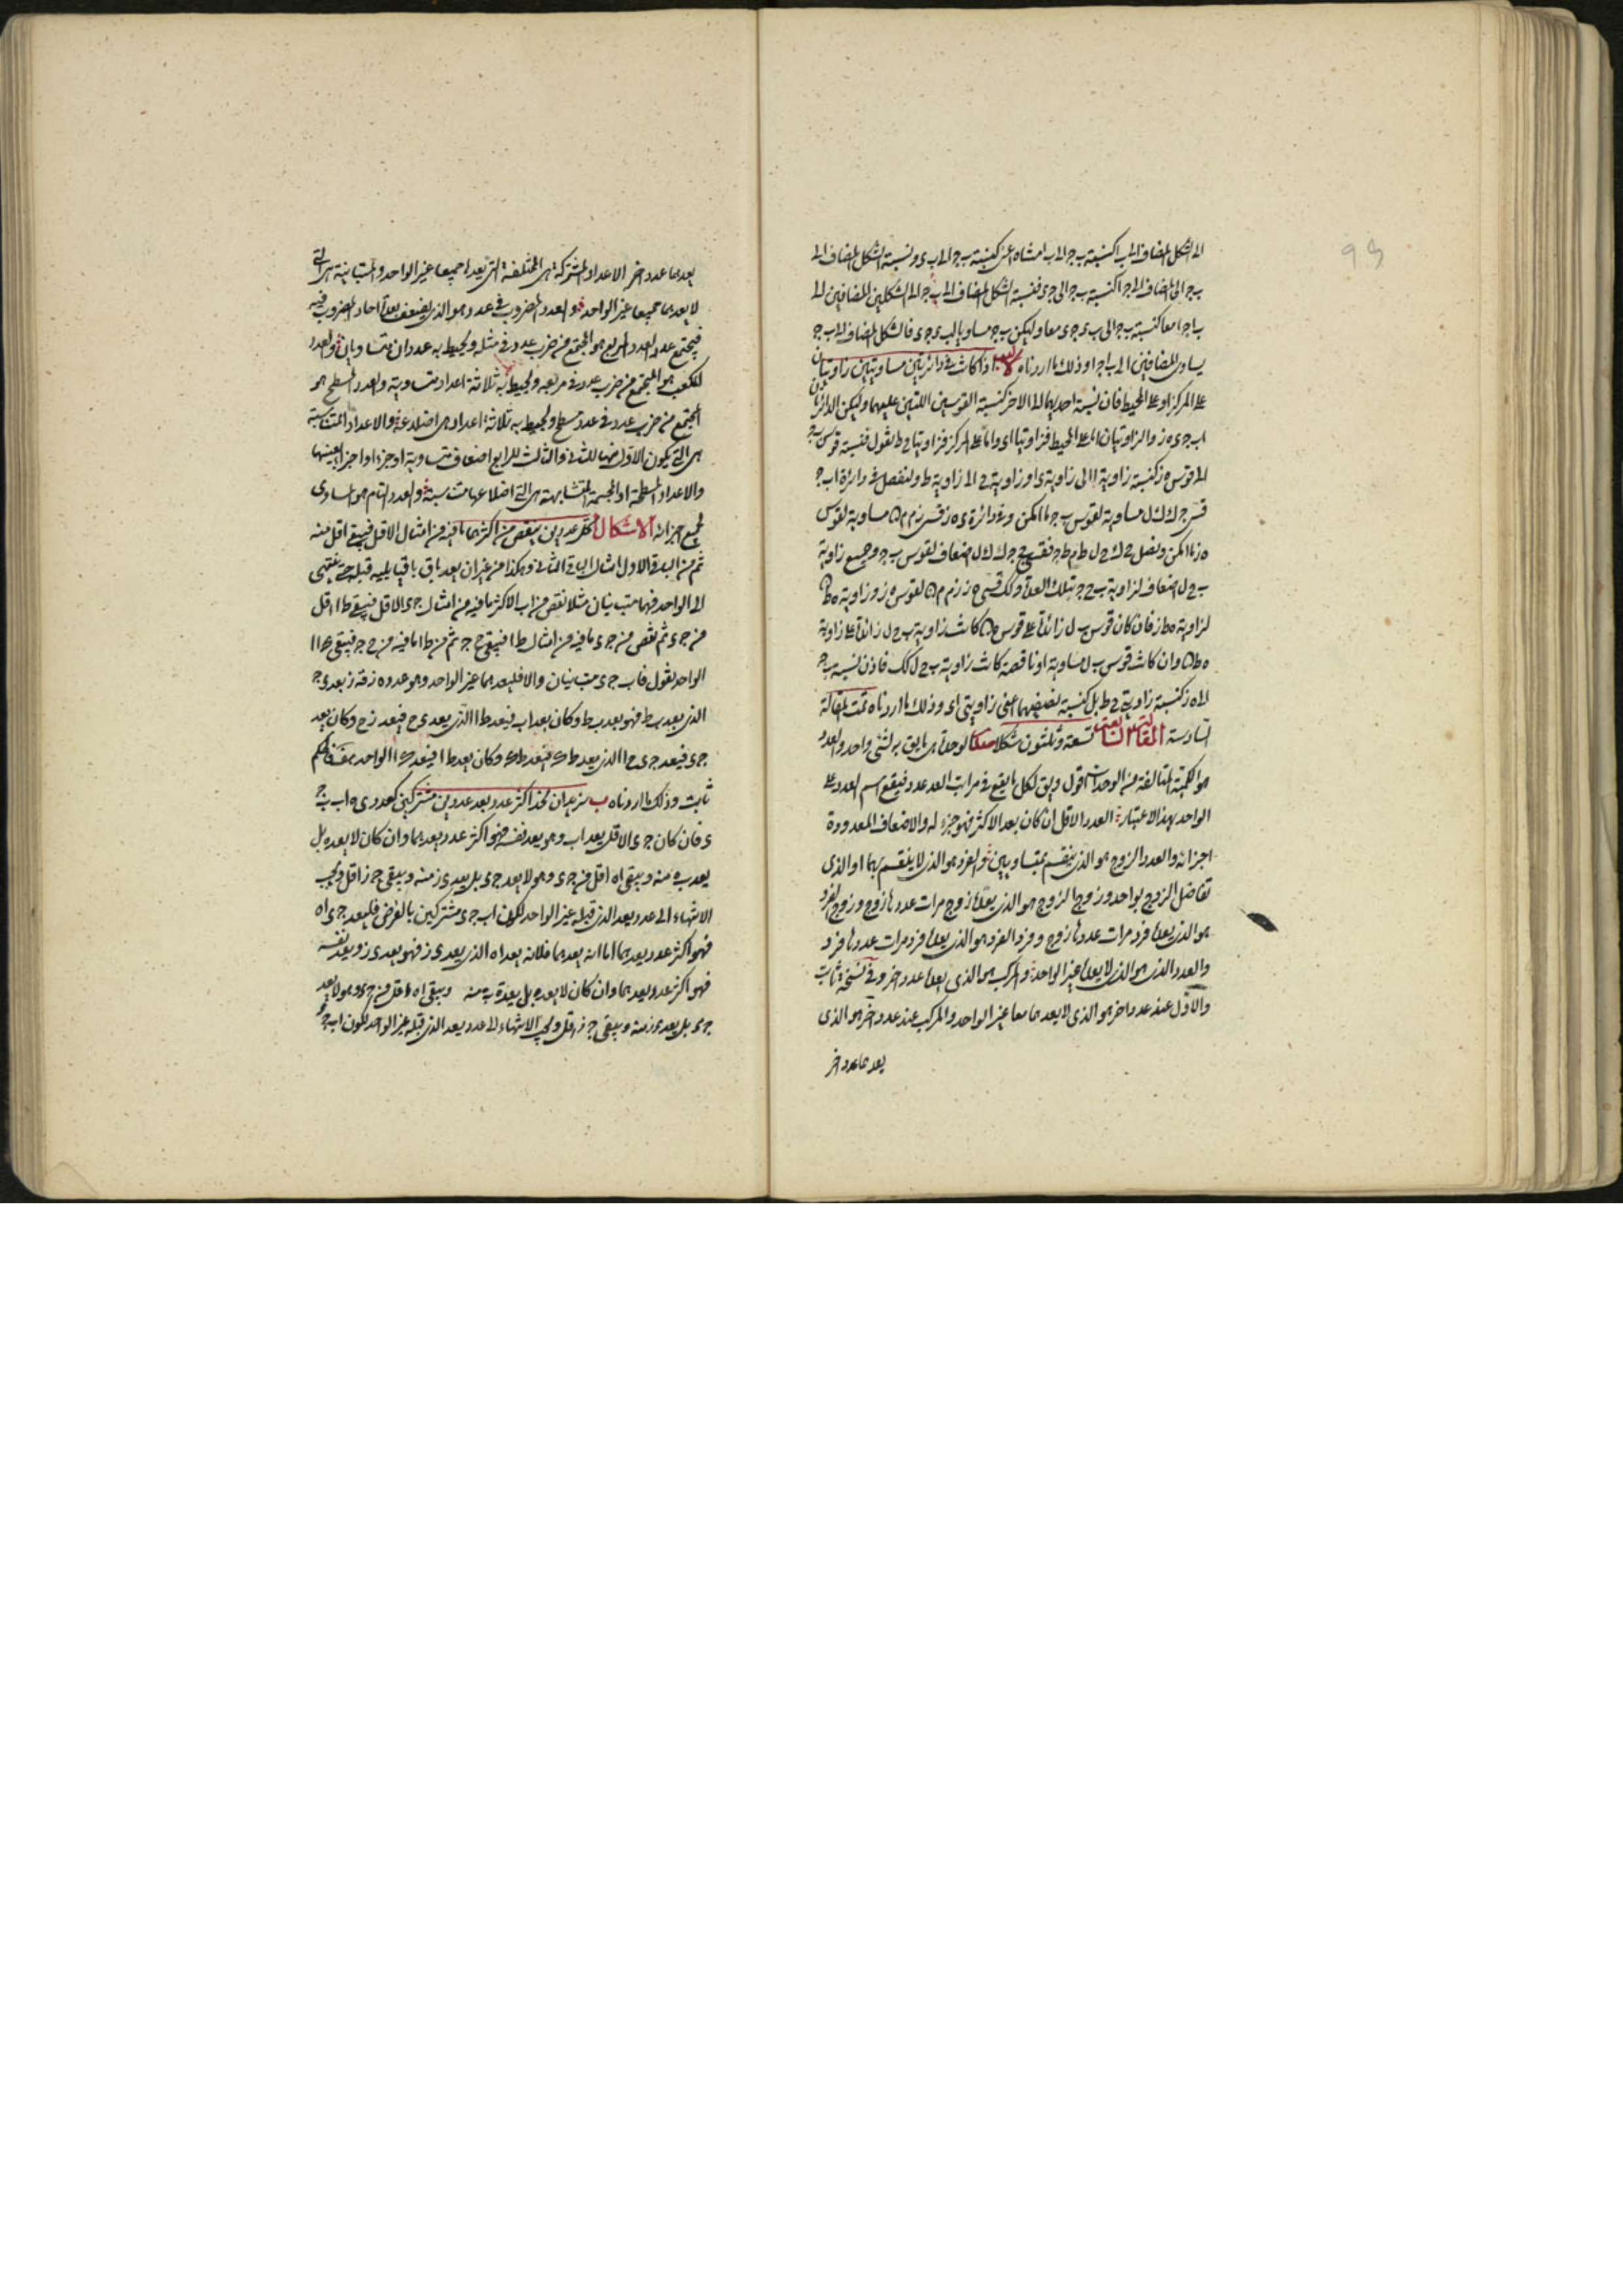 الى الشكل المضاف الى ب ا كنسبة ب ج الى ب ا مثناة اعنى كنسبة ب ج الى ب ى ونسبة الشكل المضاف الى
ب ج الى المضاف الى ج ا كنسبة ب ج الى ج ى فنسبة الشكل المضاف الى ب ج الى الشكلين المضافين الى
ب ا ج ا معا كنسبة ب ج الى ب ى ج ى معا وليكن ب ج مساو يا لب ى ج ى فالشكل المضاف الى ب ج
يساوى المضافين الى ب ا ج ا وذلك ما اردناه اذا كانت فى دائرتين مساويتين زاويتان
على المركز او على المحيط فان نسبة احديهما الى الاخر كنسبة القوسين اللتين عليهما وليكن الدائرتان
اب ج ى ه ز والزاويتان اما على المحيط فزاويتا ا ى واما على المركز فزاويتا ح ط نقول فنسبة قوس ب ج
الى قوس ه ز كنسبة زاوية ا الى زاوية ى او زاوية ح الى زاوية ط ولنفصل فى دائرة اب ج
قسى ج ك ك ل مساوية لقوس ب ج ما امكن وفى دائرة ى ه ز قسى ز م م ن مساوية لقوس
ه ز ما امكن ونصل ح ك ح ل ط م ط ن فقسى ج ك ك ل اضعاف لقوس ب ج وجميع زاوية
ب ح ل اضعاف لزاوية ب ح ج بتلك العدة وكك قسى ه ز ز م م ن لقوس ه ز وزاوية ه ط ن
لزاوية ه ط ز فان كان قوس ب ل زائدة على قوس ه ن كانت زاوية ب ح ل زائدة على زاوية
ه ط ن وان كانت قوس ب ل مساوية او ناقصة كانت زاوية ب ح ل كك فاذن نسبة ب ج
الى ه ز كنسبة زاوية ح ط بل كنسبة نصفيهما اعنى زاويتى ا ى وذلك ما اردناه تمت المقالة
السادسة المقالة السابعة تسعة وثلثون شكلا الوحدة هى ما يق بر لشئ واحد والعدد
هو الكمية المتالفة من الوحدات اقول ويق لكل ما يقع فى مراتب العد عدد فيقع اسم العدد على
الواحد بهذا الاعتبار العدد الاقل ان كان يعد الاكثر فهو جزء له والاضعاف المعدودة
اجزائه والعدد الزوج هو الذى ينقسم بمتساويين والفرد هو الذى لا ينقسم بهما او الذى
تفاضل الزوج بواحد وزوج الزوج هو الذى يعده زوج مرات عددها زوج وزوج الفرد
هو الذى يعده فرد مرات عددها زوج وفرد الفرد هو الذى يعده فرد مرات عددها فرد
والعدد الاول هو الذى لا يعده غير الواحد والمركب هو الذى يعده عدد اخر وفى نسخة ثابت
والاول عند عدد اخر هو الذى لا يعدهما معا غير الواحد والمركب عند عدد اخر هو الذى
يعدهما عدد اخر
يعدهما عدد اخر الاعداد المشتركة هى المختلفة التى يعدها جميعا غير الواحد والمتباينة هى التى
لا يعدها جميعا غير الواحد والعدد المضروب فى عدد هو الذى يضعف بعدة احاد المضروب فيه
فيجتمع عدد والعدد المربع هو المجتمع من ضرب عدد فى مثله ويحيط به عددان متساويان والعدد
المكعب هو المجتمع من ضرب عدد فى مربعه ويحيط به ثلاثة اعداد متساوية والعدد المسطح هو
المجتمع من ضرب عدد فى عدد والمجسم ويحيط به ثلاثة اعداد هى اضلاعه والاعداد المتناسبة
هى التى يكون الاول منها للثانى والثالث للرابع اضعاف متساوية او جزء او اجزاء بعينها
والاعداد المسطحة او المجسمة المتشابهة هى التى اضلاعها متناسبة والعدد التام هو المساوى
لجميع اجزائه الاشكال كل عددين ينقص من اكثرهما ما فيه من امثال الاقل فيبقى اقل منه
ثم من الباقى الاول امثال الباقى الثانى وهكذا من غير ان يعد باق ما يليه قبله حتى ينتهى
الى الواحد فهما متباينان مثلا نقص من اب الاكثر ما فيه من امثال ج ى الاقل فيبقى ط ا اقل
من ج ى ثم نقص من ج ى ما فيه من امثال ط ا فيبقى ح ج ثم من ط ا ما فيه من ح ج فيبقى ك ا
الواحد نقول فاب ج ى متباينان والا فليعدهما غير الواحد وهو عدد ه ز فه ز يعد ى ج
الذى يعد ب ط فهو يعد ب ط وكان يعد اب فيعد ط ا الذى يعد ى ح فيعد ى ح وكان يعد
ج ى فيعد ج ح الذى يعد ط ك فيعد ط ك وكان يعد ط ا فيعد ك ا الواحد هف فالحكم
ثابت وذلك ما اردناه ب نريد ان نجد اكثر عدد يعد عددين مشتركين كعددى اب ج
ى فان كان ج ى الاقل يعد اب وهو يعد نفسه فهو اكثر عدد يعدهما وان كان لا يعده بل
يعد ب ه منه ويبقى ا ه اقل من ج ى وهو لا يعد ج ى بل يعد ى ز منه ويبقى ج ز اقل ويجب
الانتهاء الى عدد يعد الذى قبله غير الواحد لكون اب ج ى مشتركين بالفرض فليعد ج ز ا ه
فهو اكثر عدد يعدهما اما انه يعدهما فلانه يعد ا ه الذى يعد ى ز فهو يعد ى ز ويعد نفسه
فهو اكثر عدد يعدهما وان كان لا يعده بل يعد ب ه منه ويبقى ا ه اقل من ج ى وهو لا يعد
ج ى بل يعد ى ز منه ويبقى ج ز اقل ويجب الانتهاء الى عدد يعد الذى قبله غير الواحد لكون اب ج ى